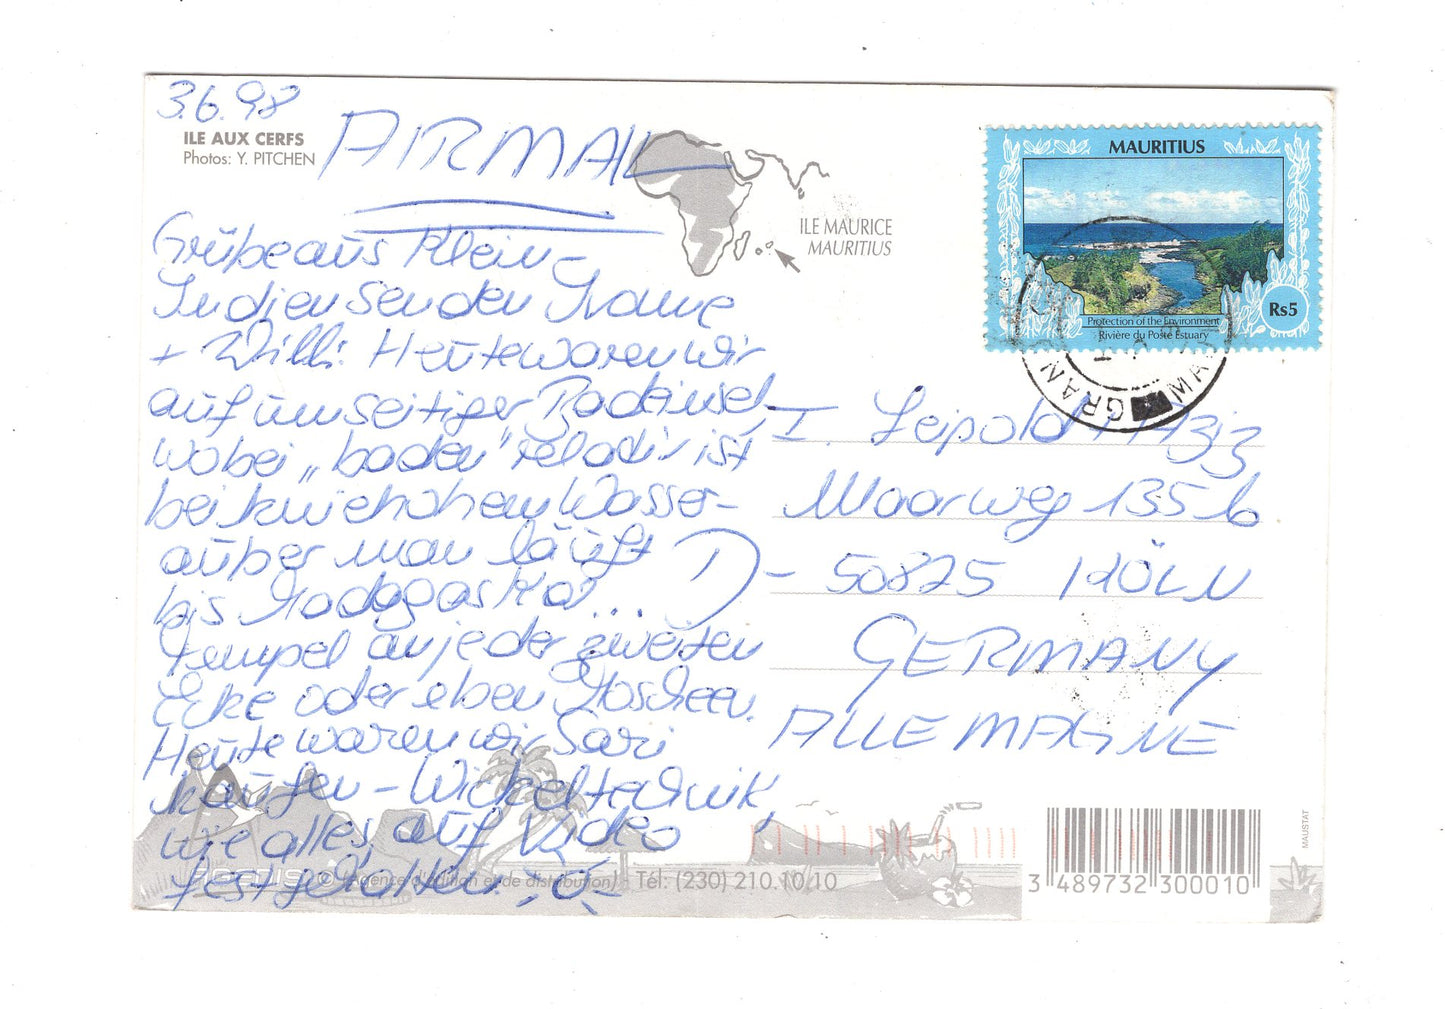 3.6.98
ILE AUX CERFS
Photos: Y. PITCHEN
AIRMAIL
ILE MAURICE
MAURITIUS
MAURITIUS
Rs5
Protection of the Environment
Rivière du Poste Estuary
GRAN
MA
Grüße aus Klein-
Indien senden Ivonne
+ Willi. Heute waren wir
auf umseitiger Badeinsel,
wobei "baden" relativ ist
bei kniehohem Wasser-
außer man läuft
bis Madagaskar...
Tempel an jeder zweiten
Ecke oder eben Moscheen.
Heute waren wir Sari
kaufen - Wickeltechnik,
wie alles, auf Video
festgehalten.
I. Leipold / Aziz
Maarweg 135 b
D- 50825 KÖLN
GERMANY
ALLEMAGNE
(Agence d'édition et de distribution) - Tél: (230) 210.10.10
3 489732 300010
MAUSTAT